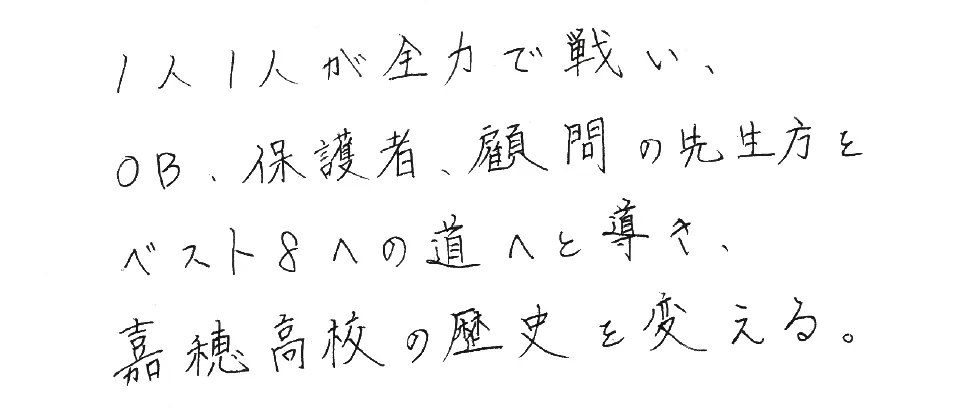 1人1人が全力で戦い、
OB、保護者、顧問の先生方を
ベスト8への道へと導き、
嘉穂高校の歴史を変える。